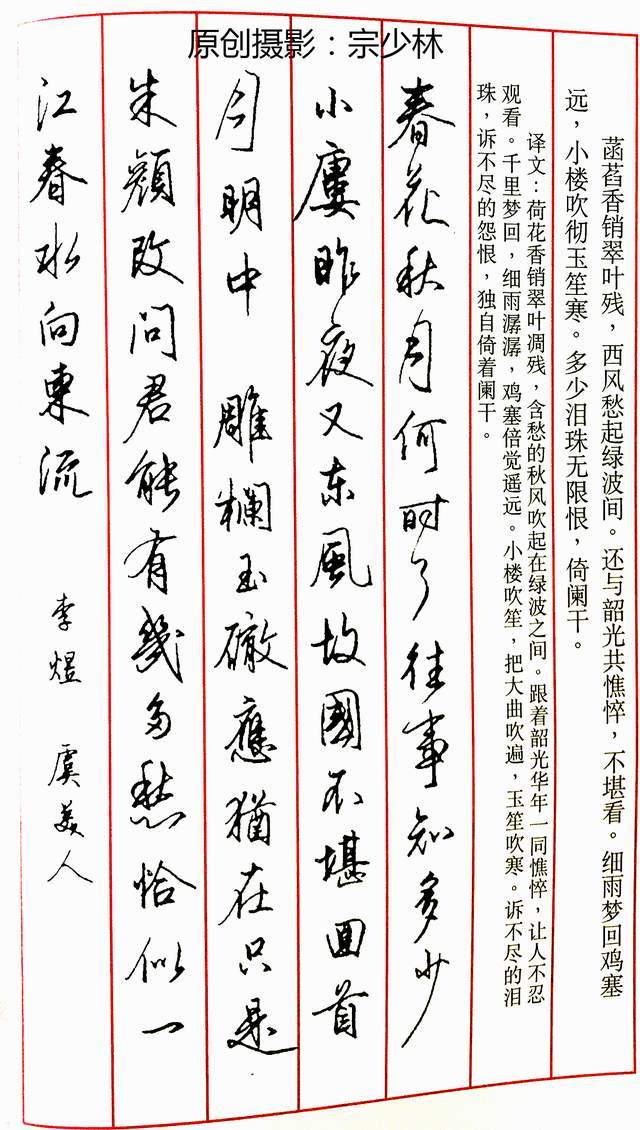 原创摄影：宗少林
菡萏香销翠叶残，西风愁起绿波间。还与韶光共憔悴，不堪看。细雨梦回鸡塞
远，小楼吹彻玉笙寒。多少泪珠无限恨，倚阑干。
译文：荷花香销翠叶凋残，含愁的秋风吹起在绿波之间。跟着韶光华年一同憔悴，让人不忍
观看。千里梦回，细雨潺潺，鸡塞倍觉遥远。小楼吹笙，把大曲吹遍，玉笙吹寒。诉不尽的泪
珠，诉不尽的怨恨，独自倚着阑干。
春花秋月何时了往事知多少
小廔昨夜又东風故國不堪回首
月明中 雕欄玉礅應猶在只是
朱顔改问君能有幾多愁恰似一
江春水向東流
李煜 虞美人